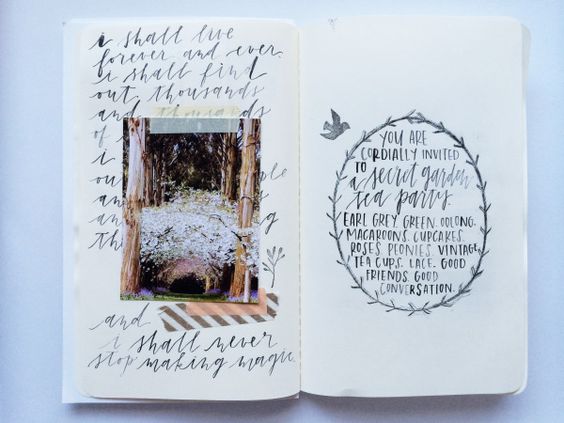 i shall live
forever and ever.
i shall find
out thousands
and thousands
of
i
ou
an
an
th
and
i shall never
stop making magic.
YOU ARE
CORDIALLY INVITED
TO
a secret garden
tea party.
EARL GREY. GREEN. OOLONG.
MACAROONS. CUPCAKES.
ROSES. PEONIES. VINTAGE
TEA CUPS. LACE. GOOD
FRIENDS. GOOD
CONVERSATION.